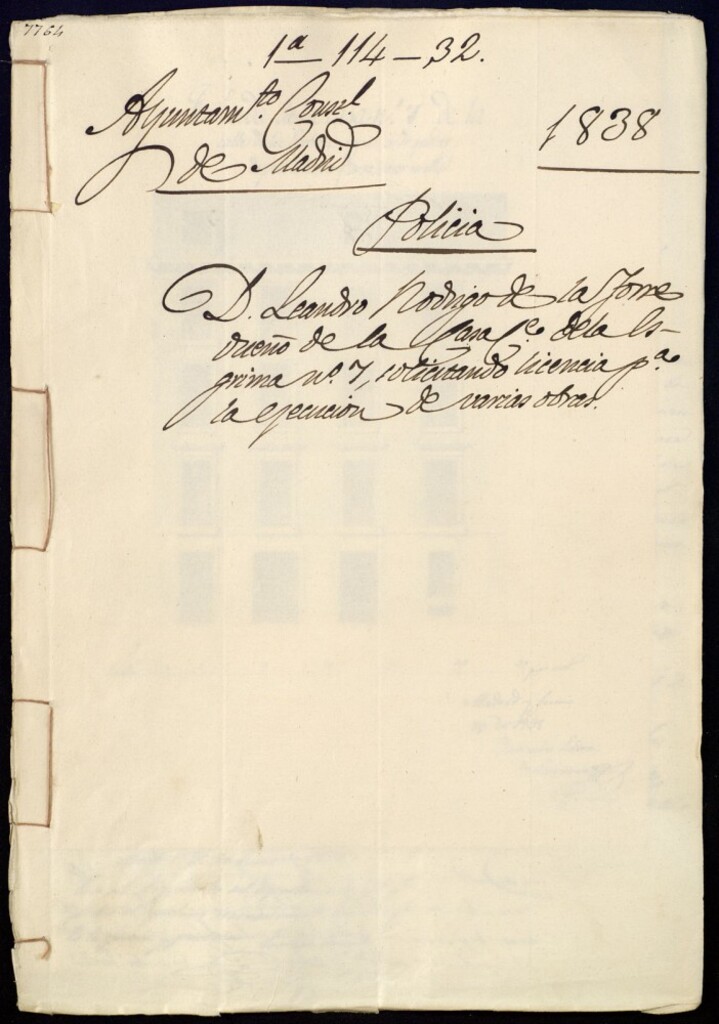 7764
1ª - 114 - 32.
Ayuntam.to Const.l
de Madrid
1838
Policia
D. Leandro Rodrigo de la Torre
dueño de la Casa C.e de la Es-
grima nº. 7, solicitando licencia p.a
la ejecucion de varias obras.